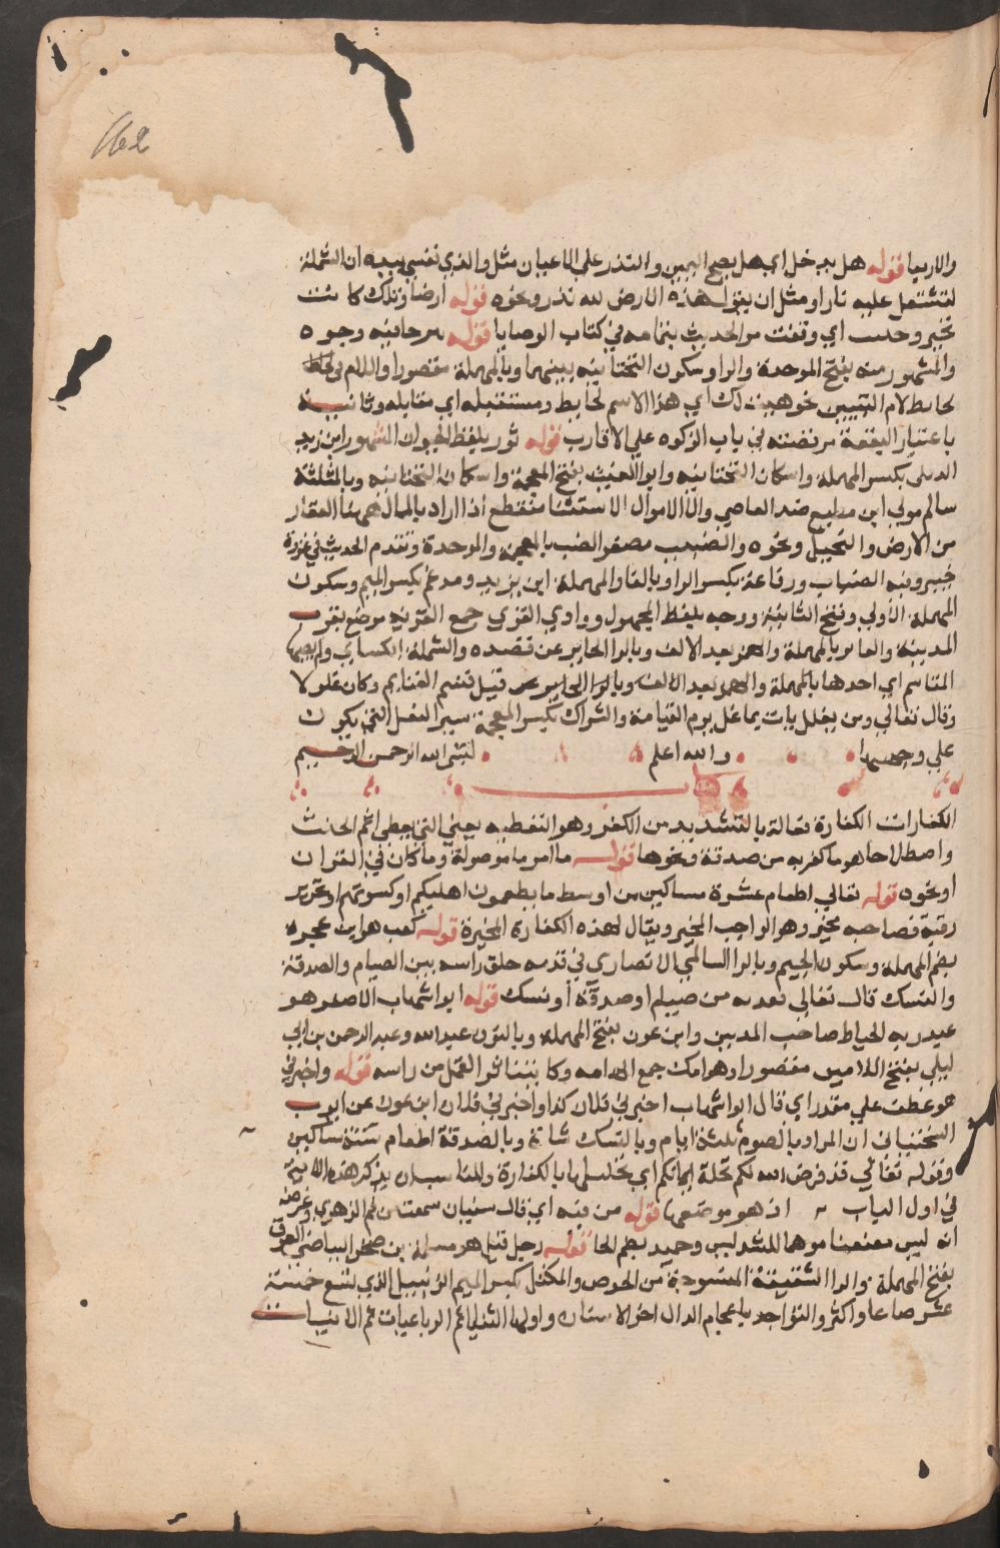 162
والاربعا قوله هل يدخل اي هل يصح اليمين والنذر علي الاعيان مثل والذي نفسي بيده ان الشملة
لتشتعل عليه نارا ومثل ان يقول هذه الارض لله نذر ونحوه قوله ارضا وذلك كانت
بخيبر وحبست اي وقفت مر الحديث بتمامه في كتاب الوصايا قوله بيرحا فيه وجوه
والمشهور منه بفتح الموحدة والرا وسكون التحتانية بينهما وبالمهملة مقصورا واللام في لحائط
لحايط لام التبيين نحو هيت لك اي هذا الاسم لحايط ومستقبلة اي مقابله وتانيثه
باعتبار البقعة مر قصته في باب الزكوه علي الاقارب قوله ثور بلفظ الحيوان المشهور ابن زيد
الديلي بكسر المهملة واسكان التحتانيه وابو الغيث بفتح المعجمة واسكان التحتانيه وبالمثلثة
سالم مولي ابن مطيع ضد العاصي والا الاموال الاستثنا منقطع اذا اراد بالمال همهنا العقار
من الارض والنخيل ونحوه والضبيب مصغر الضب بالمعجمة والموحدة وتقدم الحديث في غزوة
خيبر وفيه الضباب ورفاعة بكسر الرا وبالفا والمهملة ابن يزيد ومدعم بكسر الميم وسكون
المهملة الاولي وفتح الثانية ووجه بلفظ المجهول ووادي القري جمع القرية موضع بقرب
المدينة والعاير بالمهملة والهمز بعد الالف وبالرا الحاير عن قصده والشملة الكسا ولم يصبها
المقاسم اي احدها بالمهملة والهمز بعد الالف وبالرا قبل تقسم الغنايم وكان غلولا
وقال تعالي ومن يغلل يات بما غل يوم القيامة والشراك بكسر المعجمة سير النعل التي يكون
علي وجهها والله اعلم بسم الله الرحمن الرحيم
الكفارات الكفارة فعالة بالتشديد من الكفر وهو التغطيه يعني التي يغطي اثم الحانث
واصطلاحا هو ما كفر به من صدقة ونحوها قوله ما امر ما موصولة وما كان في القران
او نحوه قوله تعالي اطعام عشرة مساكين من اوسط ما يطعمون اهليكم او كسوتهم او تحرير
رقبة فصاحبه مخير وهو الواجب المخير ويقال لهذه الكفارة المخيرة قوله كعب هو ابن عجره
بضم المهملة وسكون الجيم وبالرا السالمي الانصاري في قدمه حلق راسه بين الصيام والصدقة
والنسك قال تعالي فعديه من صيام او صدقة او نسك قوله ابو شهاب الاصغر هو
عبد ربه الحياط صاحب المدبين وابن عون بفتح المهملة وبالنون عبد الله وعبد الرحمن بن ابي
ليلي بفتح اللامين مقصورا وهوامك جمع الهامه وكا يتناثر القمل من راسه قوله واخبرني
هو عطف علي مقدر اي قال ابو شهاب اخبرني فلان كذا واخبرني فلان ابن عون عن ايوب
السختياني ان المراد بالصوم ثلثة ايام وبالنسك شاة وبالصدقة اطعام ستة مساكين
وقوله تعالي قد فرض الله لكم تحلة ايمانكم اي تحليلها بالكفارة والمناسب ان يذكر هذه الاية
في اول الباب اذ هو موضعها قوله من فيه اي قال سفيان سمعته من فم الزهري وغرضه
انه ليس معنعنا موهما للتدليس وحميد بضم الحا قوله رجل قيل هو سلمة بن صخر البياضي العرق
بفتح المهملة والرا السقيفة المنسوجة من الخوص والمكتل بكسر الميم الزنبيل الذي يسع خمسة
عشر صاعا واكثر والنواجد باعجام الدال اخر الاسنان واولها الثنايا ثم الرباعيات ثم الانياب